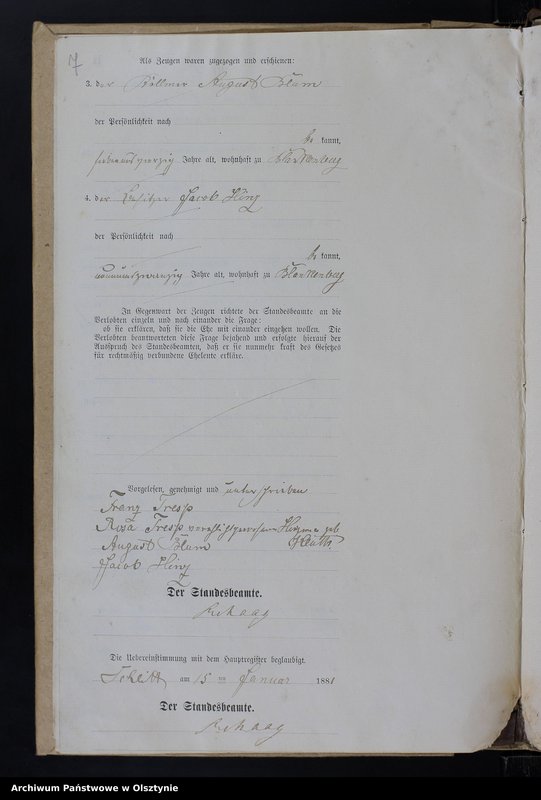 7
Als Zeugen waren zugezogen und erschienen:
3. der Köllmer August Blum
der Persönlichkeit nach
be kannt,
siebenundvierzig Jahre alt, wohnhaft zu Blankenberg
4. der Besitzer Jacob Hinz
der Persönlichkeit nach
be kannt,
neunundzwanzig Jahre alt, wohnhaft zu Blankenberg
In Gegenwart der Zeugen richtete der Standesbeamte an die
Verlobten einzeln und nach einander die Frage:
ob sie erklären, daß sie die Ehe mit einander eingehen wollen. Die
Verlobten beantworteten diese Frage bejahend und erfolgte hierauf der
Ausspruch des Standesbeamten, daß er sie nunmehr kraft des Gesetzes
für rechtmäßig verbundene Eheleute erkläre.
Vorgelesen, genehmigt und unterschrieben
Franz Tresp
Rosa Tresp geb.
August Blum
Jacob Hinz
Der Standesbeamte.
Rehaag
Die Uebereinstimmung mit dem Hauptregister beglaubigt.
am 15 ten Januar 1881
Der Standesbeamte.
Rehaag
Archiwum Państwowe w Olsztynie